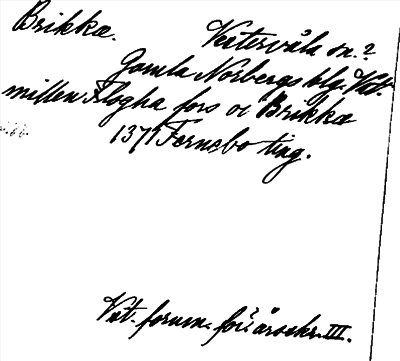 Brikka. Vestervåla sn.?
Gamla Norbergs blg. Vat.
millen Flogha fors oc Brikka
1371 Fernebo ting.
Vat. forum. för årsskr. III.